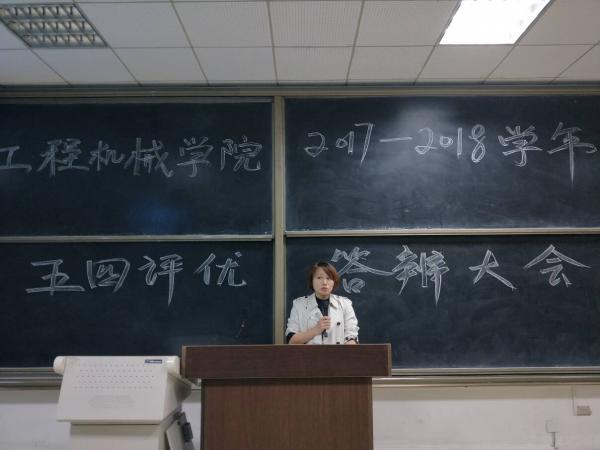 工程机械学院 2017—2018学年
五四评优 答辨大会